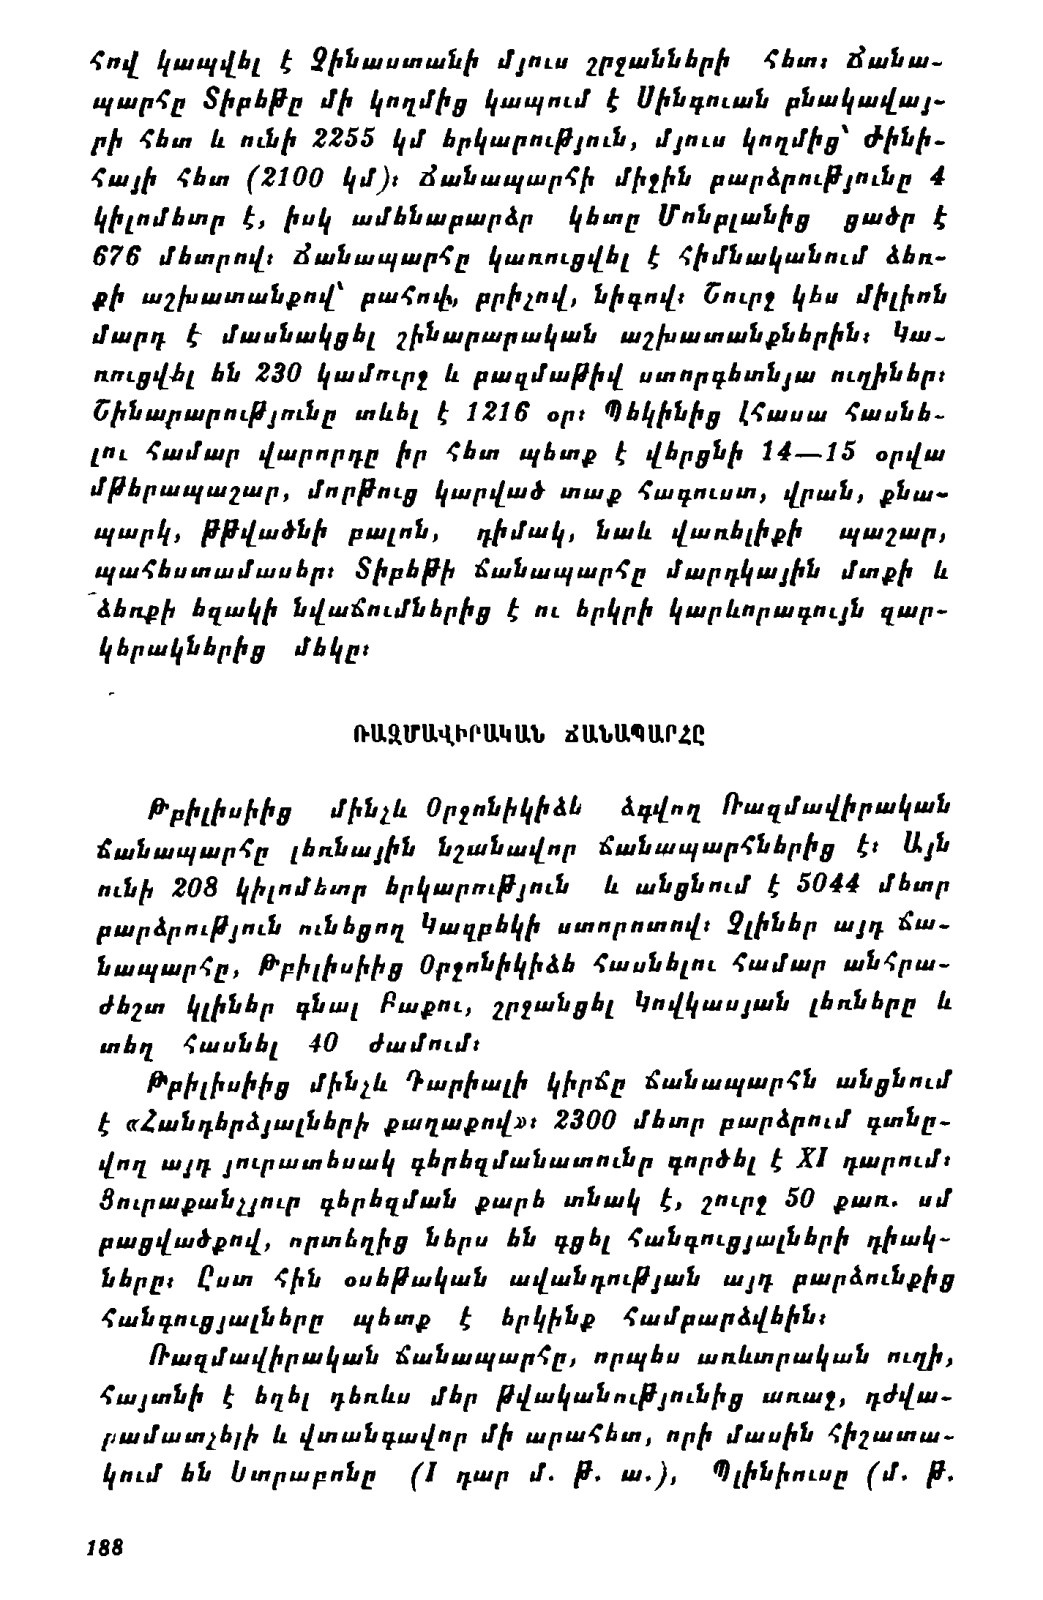 հով կապվել է Չինաստանի մյուս շրջանների հետ։ Ճանա-
պարհը Տիբեթը մի կողմից կապում է Սինգուան բնակավայ-
րի հետ և ունի 2255 կմ երկարություն, մյուս կողմից՝ Ժինի-
հայի հետ (2100 կմ)։ Ճանապարհի միջին բարձրությունը 4
կիլոմետր է, իսկ ամենաբարձր կետը Մոնբլանից ցածր է
676 մետրով։ Ճանապարհը կառուցվել է հիմնականում ձեռ-
քի աշխատանքով՝ բահով, բրիչով, նիգով։ Շուրջ կես միլիոն
մարդ է մասնակցել շինարարական աշխատանքներին։ Կա-
ռուցվել են 230 կամուրջ և բազմաթիվ ստորգետնյա ուղիներ։
Շինարարությունը տևել է 1216 օր։ Պեկինից Լհասա հասնե-
լու համար վարորդը իր հետ պետք է վերցնի 14—15 օրվա
մթերապաշար, մորթուց կարված տաք հագուստ, վրան, քնա-
պարկ, թթվածնի բալոն, դիմակ, նաև վառելիքի պաշար,
պահեստամասեր։ Տիբեթի ճանապարհը մարդկային մտքի և
ձեռքի եզակի նվաճումներից է ու երկրի կարևորագույն զար-
կերակներից մեկը։
ՌԱԶՄԱՎԻՐԱԿԱՆ ՃԱՆԱՊԱՐՀԸ
Թբիլիսիից մինչև Օրջոնիկիձե ձգվող Ռազմավիրական
ճանապարհը լեռնային նշանավոր ճանապարհներից է։ Այն
ունի 208 կիլոմետր երկարություն և անցնում է 5044 մետր
բարձրություն ունեցող Կազբեկի ստորոտով։ Չլիներ այդ ճա-
նապարհը, Թբիլիսիից Օրջոնիկիձե հասնելու համար անհրա-
ժեշտ կլիներ գնալ Բաքու, շրջանցել Կովկասյան լեռները և
տեղ հասնել 40 ժամում։
Թբիլիսիից մինչև Դարիալի կիրճը ճանապարհն անցնում
է «Հանդերձյալների քաղաքով»։ 2300 մետր բարձրում գտնը-
վող այդ յուրատեսակ գերեզմանատունր գործել է XI դարում։
Յուրաքանչյուր գերեզման քարե տնակ է, շուրջ 50 քառ. սմ
բացվածքով, որտեղից ներս են գցել հանգուցյալների դիակ-
ները։ Ըստ հին օսեթական ավանդության այդ բարձունքից
հանգուցյալները պետք է երկինք համբարձվեին։
Ռազմավիրական ճանապարհը, որպես առևտրական ուղի,
հայտնի է եղել դեռևս մեր թվականությունից առաջ, դժվա-
րամատչելի և վտանգավոր մի արահետ, որի մասին հիշատա-
կում են Ստրաբոնը (I դար մ. թ. ա.), Պլինիուսը (մ. թ.
188